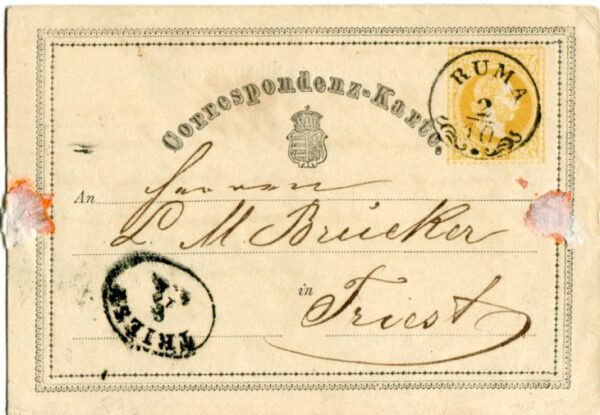 Correspondenz-Karte.
RUMA
2
10
An Herren
L. M Brucker
in
Triest
TRIEST